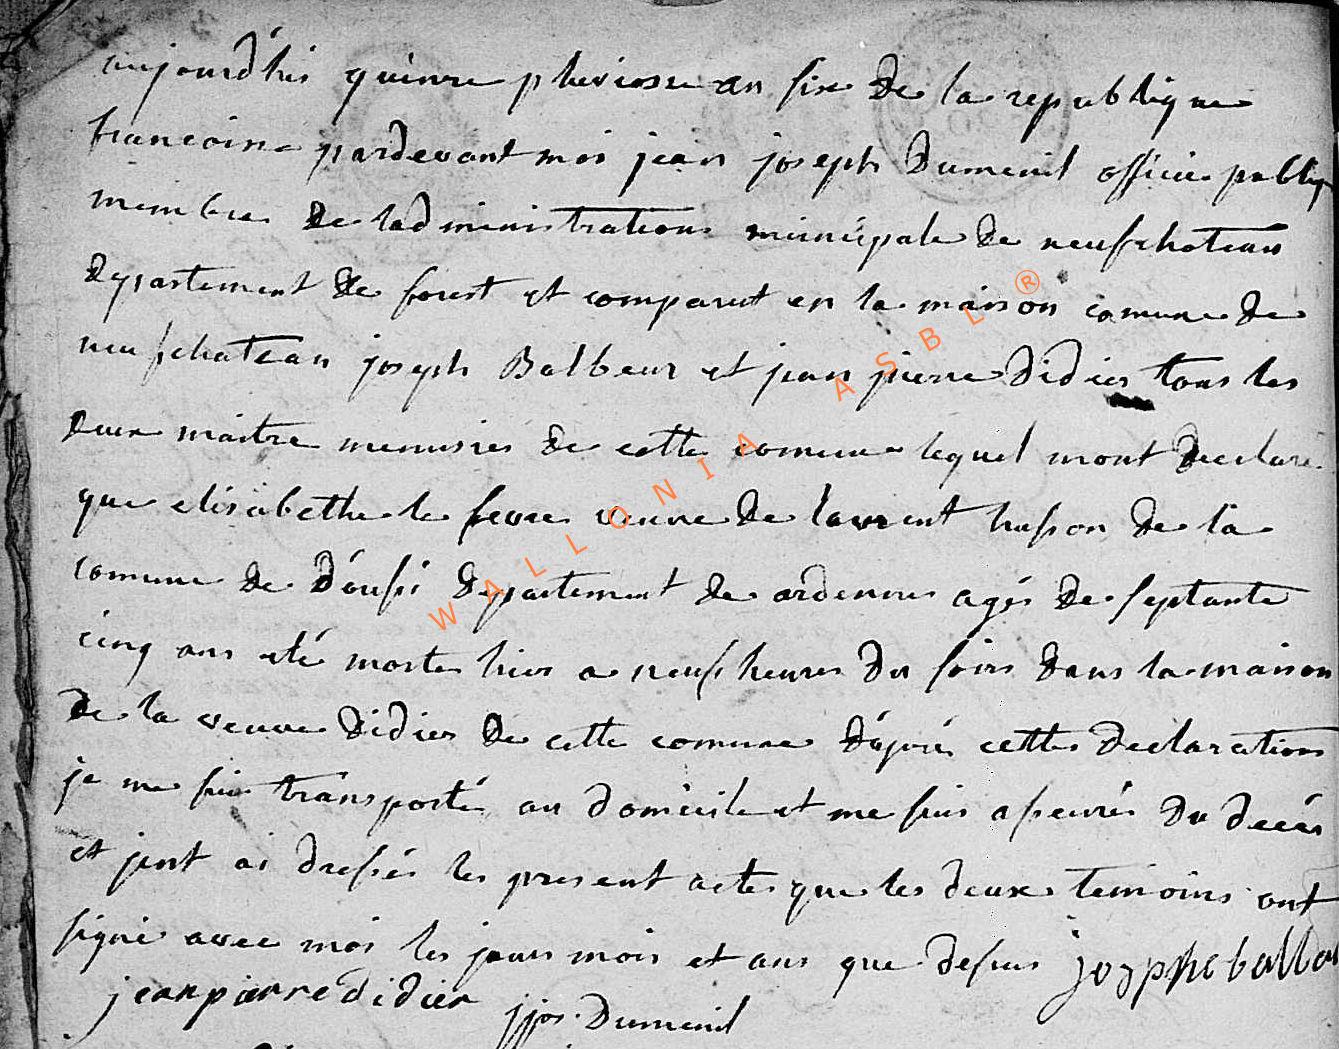 aujourdhis quinze pluviosse an six de la republique
francoise pardevant moi jean joseph Dumenil officie publiq
membre de ladministration municipale de neufchateau
departement de forest et comparut en la maison comune de
neufchateau joseph Balbeur et jean pierre Didier tous les
deux maitre menusier de cette comune lequel mont declare
que elisabethe le fevre veuve de laurent husson de la
comune de Doufsi departement de ardennes agés de septante
cinq ans eté morte hier a neufs heures du soir dans la maison
de la veuve Didier de cette comune dáprés cette declaration
je me suis transporté au domicile et me suis asseurés du decés
et jent ai dressés les present acte que les deux temoins ont
signé avec moi les jours mois et ans que dessus josphe balbeu
jean pierre didier jjos. Dumenil
WALLONIA ASBL ®